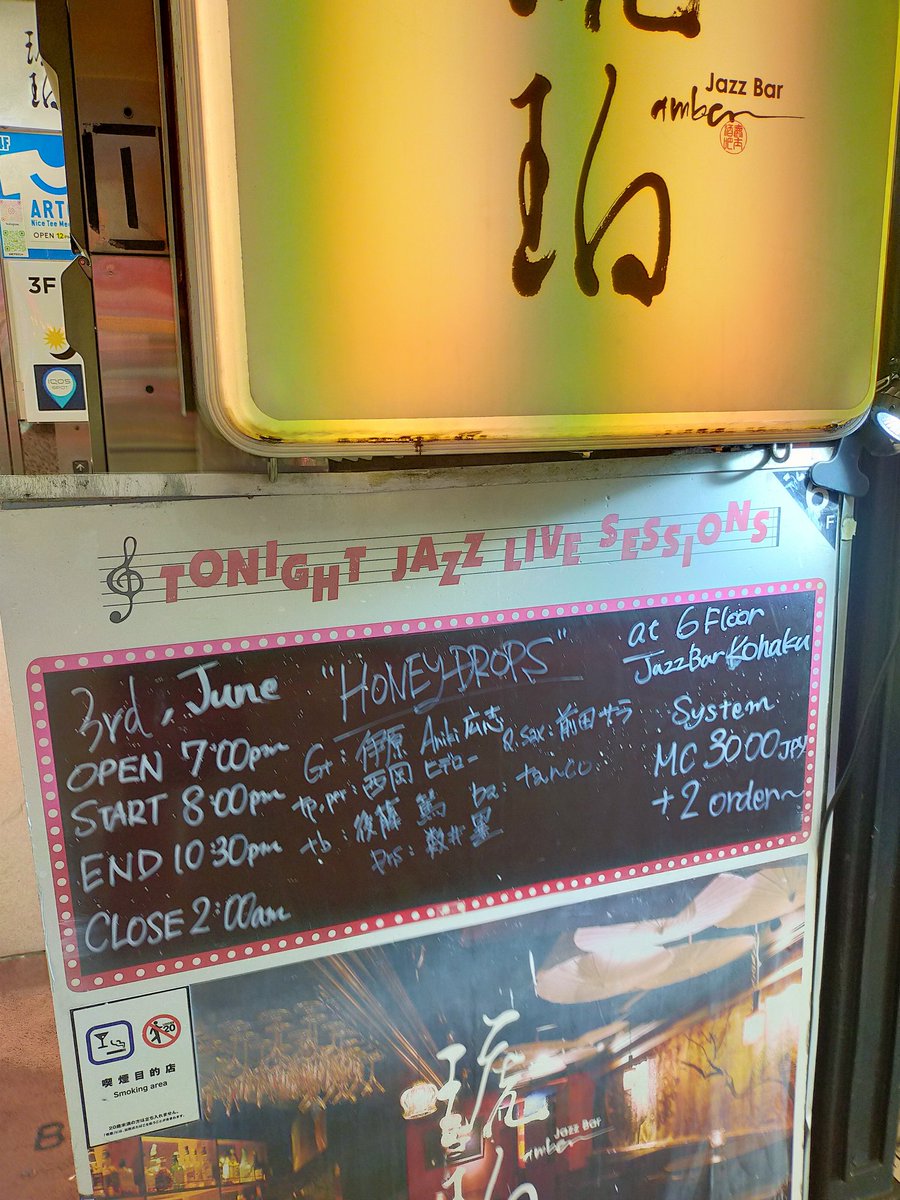 琥
珀
Jazz Bar
amber
ART
OPEN 12
3F
IQOS
SPOT
6
F
TONIGHT JAZZ LIVE SESSIONS
3rd, June
"HONEYDROPS"
at 6 Floor
Jazz Bar Kohaku
OPEN 7:00pm
START 8:00pm
END 10:30pm
CLOSE 2:00am
Gt: 伊原 Aniki 広志
tp, per: 西岡 ヒデロー
tb: 後藤 篤
a.sax: 前田 サラ
ba: tanco
Drs: 数井 塁
System
MC 3000 JPY
+2 order~
20
喫煙目的店
Smoking area
琥
珀
Jazz Bar
amber
B